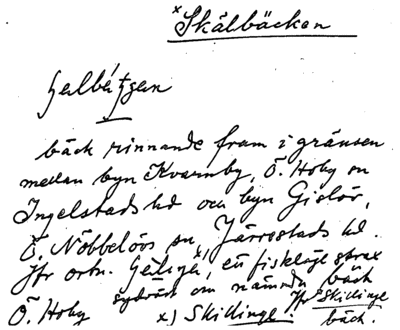 x Skålbäcken
bäck rinnande fram i gränsen
mellan byn Kvarnby, Ö. Hoby sn
Ingelstads hd och byn Gislöv,
Ö. Nöbbelövs sn, Järrestads hd.
Jfr ortn. en fiskläge strax
sydväst om nämnda bäck
Ö. Hoby x) Skillinge. Jfr Skillinge
bäck.